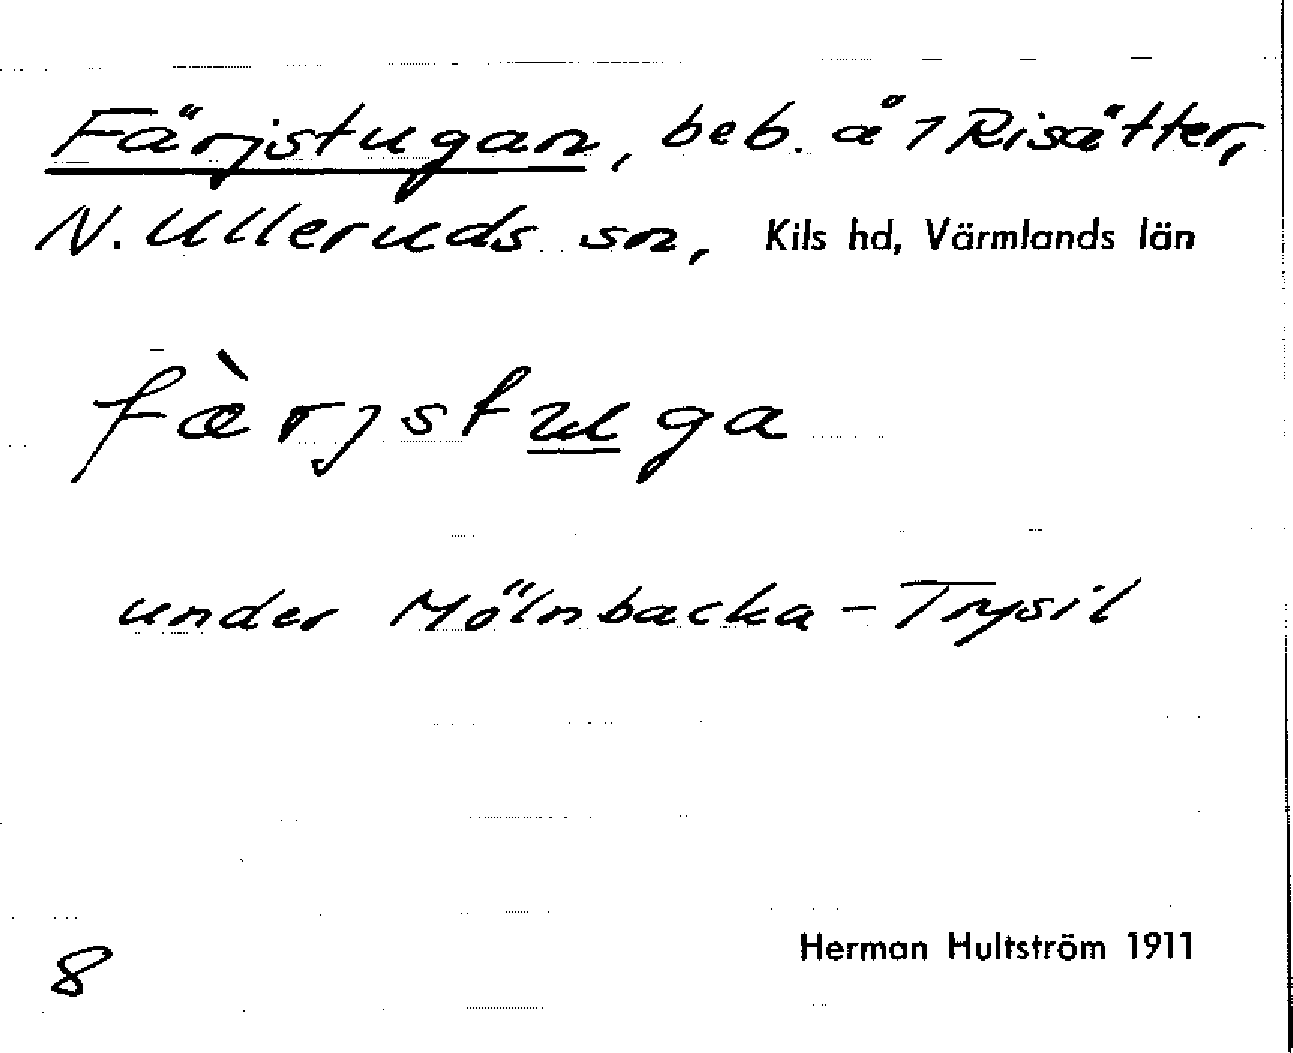 Färjstugan, beb. å 1 Risätter,
N. Ulleruds sn, Kils hd, Värmlands län
fæ̀rjstuga
under Mölnbacka - Trysil
Herman Hultström 1911
8